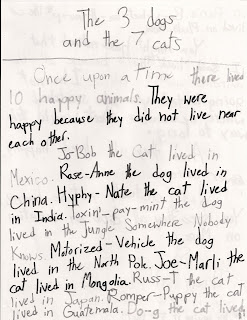 The 3 dogs
and the 7 cats
Once upon a time there lived
10 happy animals. They were
happy because they did not live near
each other.
Jo-Bob the cat lived in
Mexico. Rose-Anne the dog lived in
China. Hyphy-Nate the cat lived
in India. Toxin-pay-mint the dog
lived in the Jungle Somewhere Nobody
Knows. Motorized-Vehicle the dog
lived in the North Pole. Joe-Marli the
cat lived in Mongolia. Russ-T the cat
lived in Japan. Romper-Puppy the cat
lived in Guatemala. Do-g the cat lived